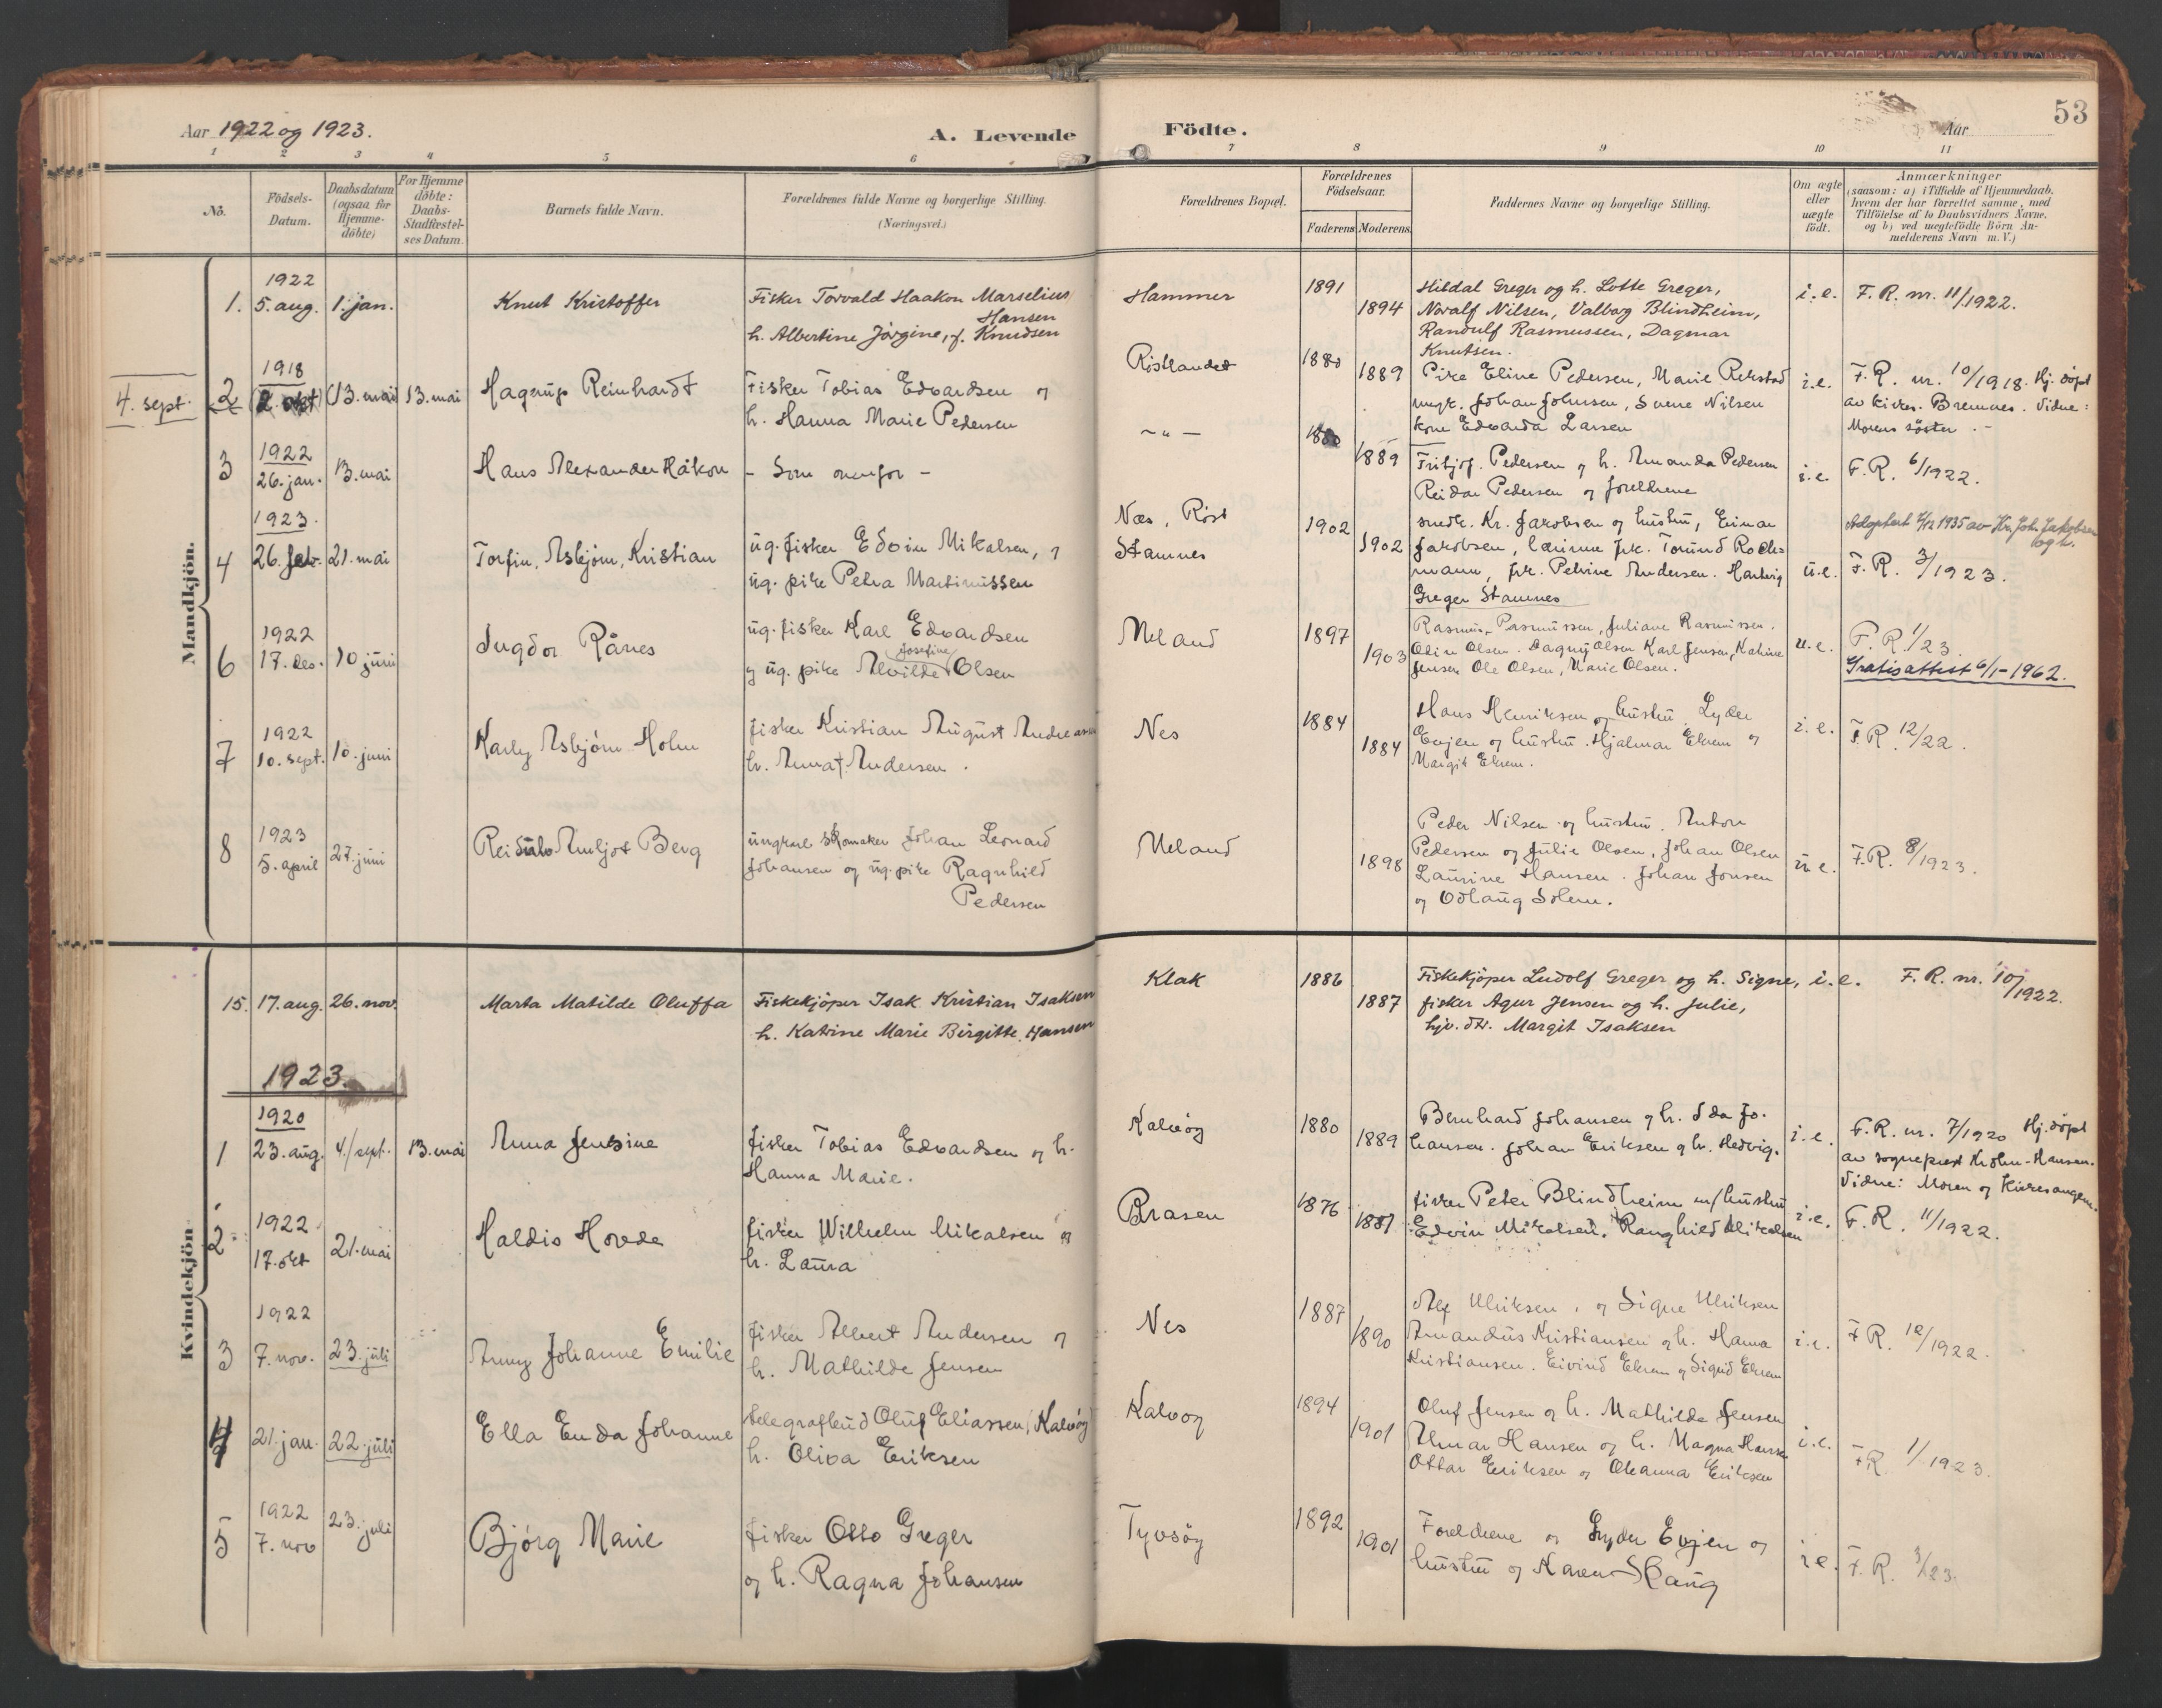 Aar 1922 og 1923.
A. Levende Födte.
Aar
53
1 2 3 4 5 6 7 8 9 10 11
No.
Födsels-
Datum.
Daabsdatum
(ogsaa for
Hjemme-
döbte)
For Hjemme
döbte:
Daabs-
Stadfæstel-
ses Datum.
Barnets fulde Navn.
Forældrenes fulde Navne og borgerlige Stilling.
(Næringsvei.)
Forældrenes Bopæl.
Forældrenes
Födselsaar.
Faderens Moderens
Faddernes Navne og borgerlige Stilling.
Om ægte
eller
uægte
födt.
Anmærkninger
(saasom: a) i Tilfælde af Hjemmedaab.
hvem der har forrettet samme, med
Tilföielse af to Daabsvidners Navne.
og b) ved uægtefödte Börn An-
melderens Navn m.V.)
Mandkjön.
1922
1. 5. aug. 1. jan.
Knut Kristoffer
Fisker Torvald Haakon Marselius
Hansen
h. Albertine Jörgine, f. Knudsen
Hammer
1891
1894
Hildal Greger og h. Lotte Greger,
Noralf Nilsen, Valborg Blindheim,
Randulf Rasmussen, Dagmar
Knutsen.
i.e.
F.R. nr. 11/1922.
4. sept.
1918
2 (2. okt) (13. mai) 13. mai
Hagerup Reinhardt
Fisker Tobias Edvardsen og
h. Hanna Marie Pedersen
Röstlandet
1880
1889
Pike Eline Pedersen, Marie Rekstad
ungk. Johan Johnsen, Svene Nilsen
kone Edvarda Larsen
i.e.
F.R. nr. 10/1918. Hj. döpt
av kirkes. Bremnes. Vidne:
Morens söster.-
1922
3 26. jan. 13. mai
Hans Alexander Håkon
- Som ovenfor -
- " -
1880
1889
Fritjof. Pedersen og h. Amanda Pedersen
Reidar Pedersen og foreldrene
i.e.
F.R. 6/1922.
1923.
4 26. feb. 21. mai
Torfin, Asbjörn, Kristian
ug. fisker Edvin Mikalsen, og
ug. pike Petra Martinussen
Næs, Röst
Stamnes
1902
1902
snedk. Kr. Jakobsen og hustru, Einar
Jakobsen, lærinne frk. Torund Roch-
mann, frk. Petrine Andersen. Hartvig
Greger Stamnes
u.e.
Adoptert 4/12 1935 av Kr. Joh. Jakobsen
og h.
F.R. 3/1923.
1922
6 17. des. 10 juni
Ingdor Rånes
ug. fisker Karl Edvardsen
Josefine
og ug. pike Alvilde Olsen
Neland
1897
1903
Rasmus Rasmussen, Juliane Rasmussen.
Odin Olsen. Dagny Olsen Karl Jensen, Katrine
Jensen Ole Olsen, Marie Olsen.
u.e.
F.R. 1/23.
Gratisattest 6/1-1962.
1922
7 10. sept. 10. juni
Karly Asbjörn Holm
fisker Kristian August Andreassen
h. Anna f. Andersen.
Nes
1884
1884
Hans Henriksen og hustru. Lyder
Evjen og hustru. Hjalmar Ekrem og
Margit Ekrem.
i.e.
F.R. 12/22.
1923
8 5. april 27. juni
Reidulv Anljot Berg
ungkarl skomaker Johan Leonard
Johansen og ug. pike Ragnhild
Pedersen
Neland
1898
Peder Nilsen og hustru. Anton
Pedersen og Julie Olsen, Johan Olsen
Laurine Hansen. Johan Jonsen
og Odlaug Solem.
u.e.
F.R. 8/1923.
Kvindekjön
15. 17. aug. 26. nov.
Marta Matilde Oluffa
Fiskekjöper Isak Kristian Isaksen
h. Katrine Marie Birgitte, Hansen
Klak
1886
1887
Fiskekjöper Ludolf Greger og h. Signe,
fisker Agur Jensen og h. Julie,
hjv. dtr. Margit Isaksen
i.e.
F.R. nr. 10/1922.
1923.
1920
1 23. aug. 4/sept. 13. mai
Anna Jensine
fisker Tobias Edvardsen og h.
Hanna Marie.
Kalvög
1880
1889
Bernhard Johansen og h. Ida Jo-
hansen. Johan Eriksen og h. Hedvig.
i.e.
F.R. nr. 7/1920 Hj. döpt
av sogneprest Krohn-Hansen.
Vidne: Moren og Kirkesangeren.
1922
2 17. okt 21. mai
Haldis Hovda
fisker Wilhelm Mikalsen og
h. Laura
Brasen
1876
1887
fisker Peter Blindheim m/hustru
Edvin Mikalsen. Ranghild Mikalsen
i.e.
F.R. 11/1922.
1922
3 7. nov. 23. juli
Anny Johanne Emilie
fisker Albert Andersen og
h. Mathilde Jensen
Nes
1887
1890
Alf Ulriksen, og Signe Ulriksen
Amandus Kristiansen og h. Hanna
Kristiansen. Eivind Ekrem og Sigrid Ekrem
i.e.
F.R. 12/1922.
4 21. jan. 22. juli
Ella Enda Johanne
telegrafbud Oluf Eliassen (Kalvög)
h. Oliva Eriksen
Kalvög
1894
1901
Oluf Jensen og h. Mathilde Jensen
Almar Hansen og h. Magna Hansen
Ottar Eriksen og Oleanna Eriksen
i.e.
F.R. 1/1923.
1922
5 7. nov 23. juli
Bjórg Marie
fisker Otto Greger
og h. Ragna Johansen
Tyvsöy
1892
1901
Foreldrene og Lyder Evjen og
hustru og Karen Skaug
i.e.
F.R. 3/23.